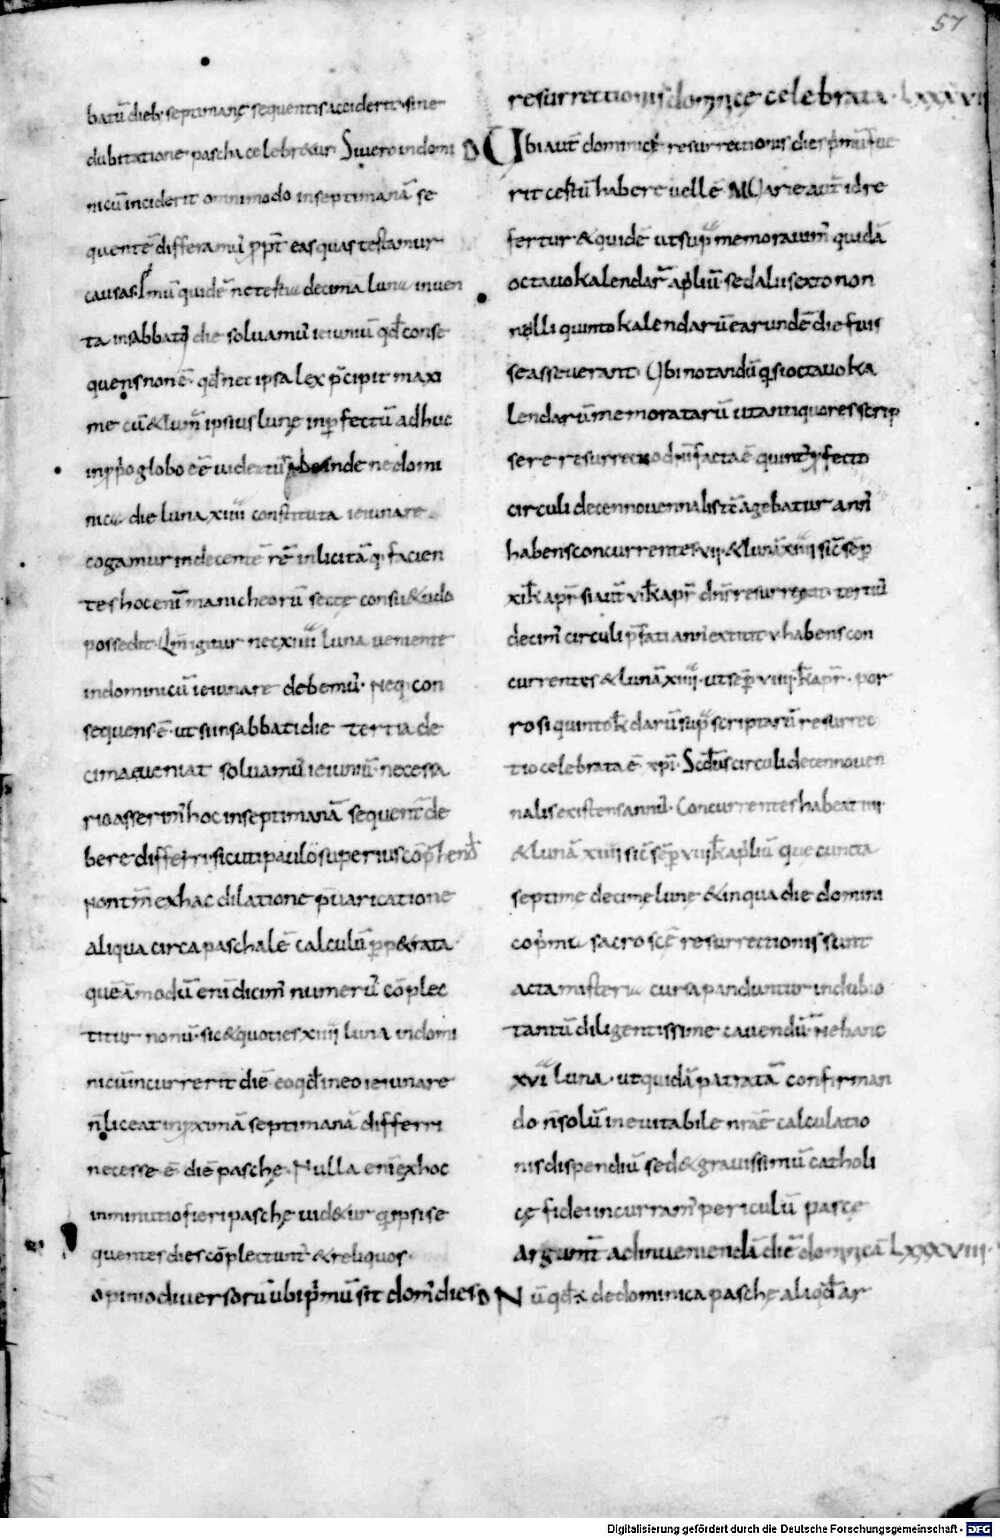 57
batū dieb; septimanę sequentis acciderit sine
dubitatione pascha celebr&ur. Si uero in domi
nicū inciderit omnimodo in septimanā se
quentē differamus ꝓpt eas quas testamur
causas. Primū quidē ne testu decima luna inuen
ta in sabbato die soluamus ieiuniū qđ conse
quens non ē. qđ nec ipsa lex p̄cipit maxi
me cū & lum̄ ipsius lunę inperfectū adhuc
in globo eē uideatur Deinde ne domi
nica die luna xiiii constituta ieiunare
cogamur indecentē rē inlicitāq; facien
tes hoc enī manicheorū sectę consu&udo
possedit. Qm̄ igitur nec xiiii luna ueniente
in dominicū ieiunare debemus. Neq; con
sequens ē. ut si in sabbati die tertia de
cima eueniat soluamus ieiuniū. necessa
rio asserim̄ hoc in septimanā sequentē de
bere differri sicuti paulo superius cōp̄hend̄
Non tm̄ ex hac dilatione p̄uaricatione
aliqua circa paschalē calculū ꝑp&rata
quēāmodū enī dicim̄ numerū cōplec
titur nonū. sic & quoties xiiii luna in domi
nicū incurrerit diē eo qđ in eo ieiunare
n̄ liceat in ꝓximā septimanā differri
necesse ē diē paschę. Nulla enī ex hoc
inminutio fieri paschę uid&ur q; ipsi se
quentes dies cōplectunt̄ & reliquos.
Opinio diuersorū ubi p̄mū sit dom̄ dies
resurrectionis domnicę celebrata. LXXXVII
Ubi aut̄ dominicę resurrectionis dies p̄mū fue
rit cestū habere uellē MCarie aut̄ id re
fertur & quidē ut sup̄ memorauim̄ quidā
octauo kalendar̄ apliū sed alii sexto non
nolli quinto kalendarū earundē die fuis
se asseuerant. Ubi notandū q si octauo ka
lendarū memoratarū ut antiquores scrip
sere resurrectio dn̄i facta ē quint; ꝓfecto
circuli decennouennalis tē agebatur ann̄
habens concurrentes vii. & lunā xiiii sic sēp
xi k̄ apr̄ si aut̄ vi k̄ apr̄ dn̄s resurrexit tertiū
decim̄ circuli p̄fati ann̄ extitit v habens con
currentes & lunā xiiii. ut sēp viiii k̄ apr̄. por
ro si quinto k̄ darū sup̄ scriptarū resurrec
tio celebrata ē xp̄i. Scđus circuli decennouen
nalis existens annus. Concurrentes habeat iiii
& lunā xiiii sic sēp viii k̄ apliū que cuncta
septime decime lune & in qua die domini
co p̄mu sacro scē resurrectionis sunt
acta misteria cursa panduntur indubio
tantū diligentissime cauendū. Ne hanc
xvi luna. ut quidā patratā confirman
do n̄ solū ineuitabile nr̄ae calculatio
nis dispendiū sed & grauissimū catholi
cę fidei incurram̄ periculū parte
Argum̄t ad inueniendā diē domnicā LXXXVIII.
Nū qđ x de dominica paschę aliqđ ar
Digitalisierung gefördert durch die Deutsche Forschungsgemeinschaft - DFG